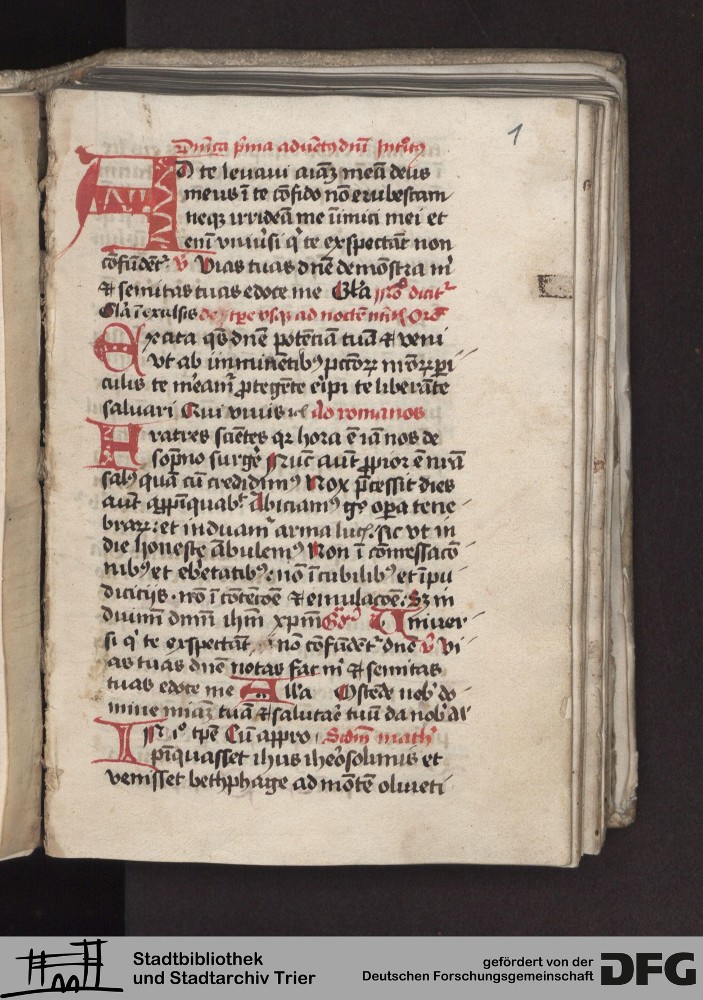 Dnica pma advetus dni Introitus
1
AD te levavi aiaz mea deus
meus i te cofido no erubescam
neqz irrideat me inimici mei et
eni universi q te exspectat non
cofudet v Vias tuas dne demostra m
et semitas tuas edoce me Gla no dicit
Gla i excelsis
Excita qs dne potencia tua et veni
vt ab imminetibus pctorz nrorz pi
culis te meam ptegete eripi te liberate
salvari Qui vivis Ad romanos
Fratres scietes qr hora e ia nos de
sopno surge Nuc aut ppior e nra
salus qua cu credidimus Nox pcessit dies
aut appinquabit Abiciamus go opa tene
brarz et induam arma lucis sic vt in
die honeste abulemus Non i comessaco
nibus et ebrietatibus no i cubilibus et ipu
dicitijs no i cotecoe et emulacoe Sz in
duimi dnm ihm xpm Gr Univer
si q te exspectat no cofudet dne v Vi
as tuas dne notas fac m et semitas
tuas edoce me Alla Ostede nob do
mine miaz tua et salutare tuu da nob Al
In io tpe Cu appro Scdm math
pinquasset ihus iherosolimis et
venisset bethphage ad mote oliveti
Stadtbibliothek
und Stadtarchiv Trier
gefördert von der
Deutschen Forschungsgemeinschaft
DFG